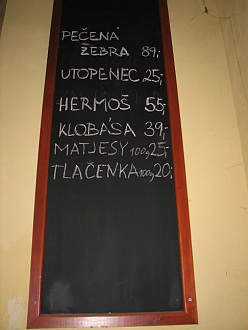 PEČENÁ
ŽEBRA 89,-
UTOPENEC 25,-
HERMOŠ 55,-
KLOBÁSA 39,-
MATJESY 100g 25,-
TLAČENKA 100g 20,-